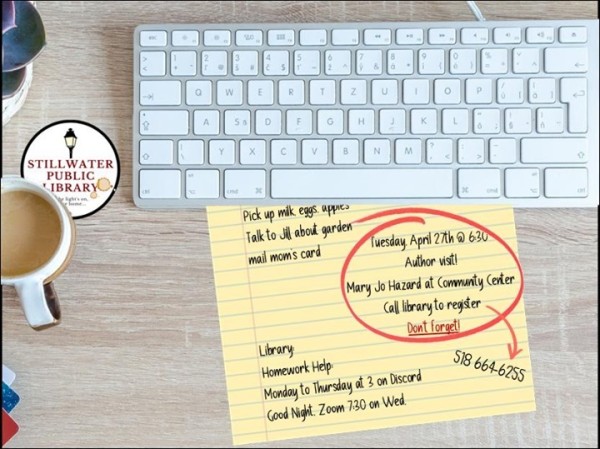 STILLWATER
PUBLIC
LIBRARY
Pick up milk, eggs, apples
Talk to Jill about garden
mail mom's card
Tuesday, April 27th @ 6:30
Author visit!
Mary Jo Hazard at Community Center
Call library to register
Don't forget!
518 664-6255
Library:
Homework Help:
Monday to Thursday at 3 on Discord
Good Night, Zoom 7:30 on Wed.
Q W E R T Z U I O P
A S D F G H J K L
Y X C V B N M
ctrl cmd cmd ctrl